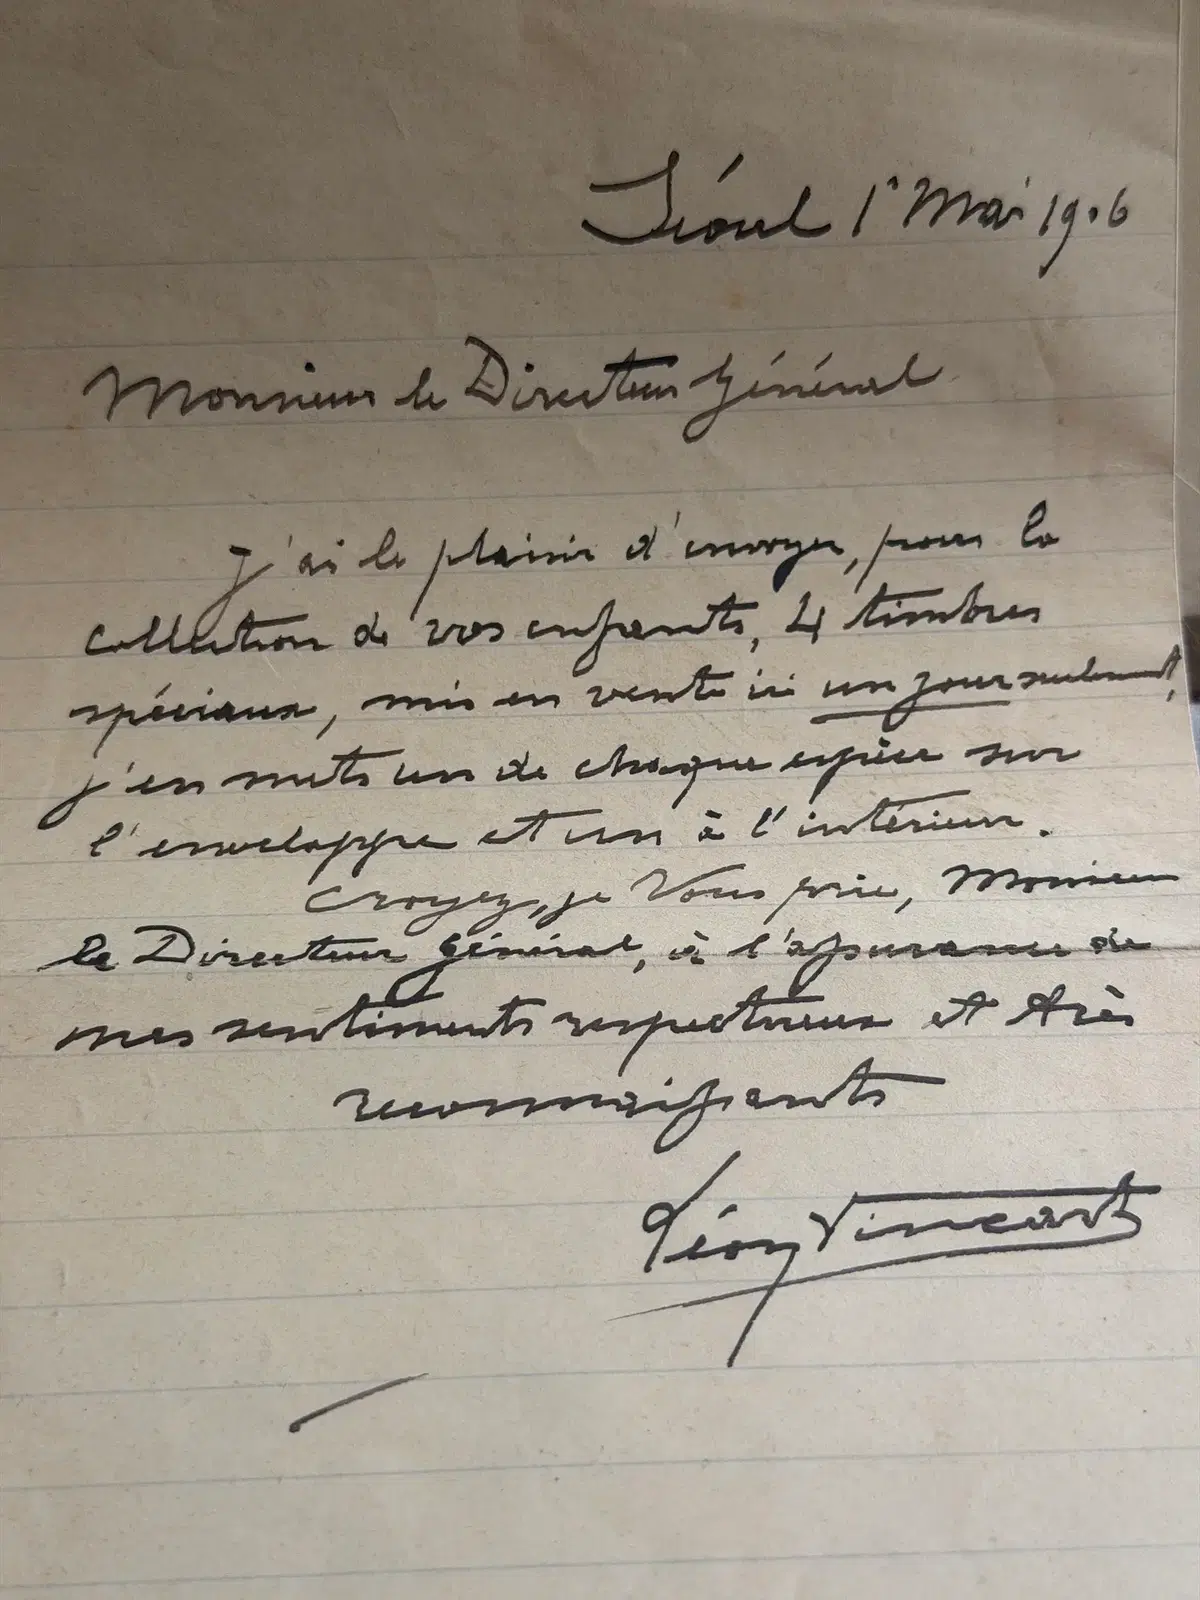 Séoul 1r Mai 1906
Monsieur le Directeur Général
J'ai le plaisir d'envoyer, pour la
collection de vos enfants, 4 timbres
spéciaux, mis en vente ici un jour seulement,
j'en mets un de chaque espèce sur
l'enveloppe et un à l'intérieur.
Croyez, je Vous prie, Monsieur
le Directeur Général, à l'assurance de
mes sentiments respectueux et très
reconnaissants
Léon Vincart